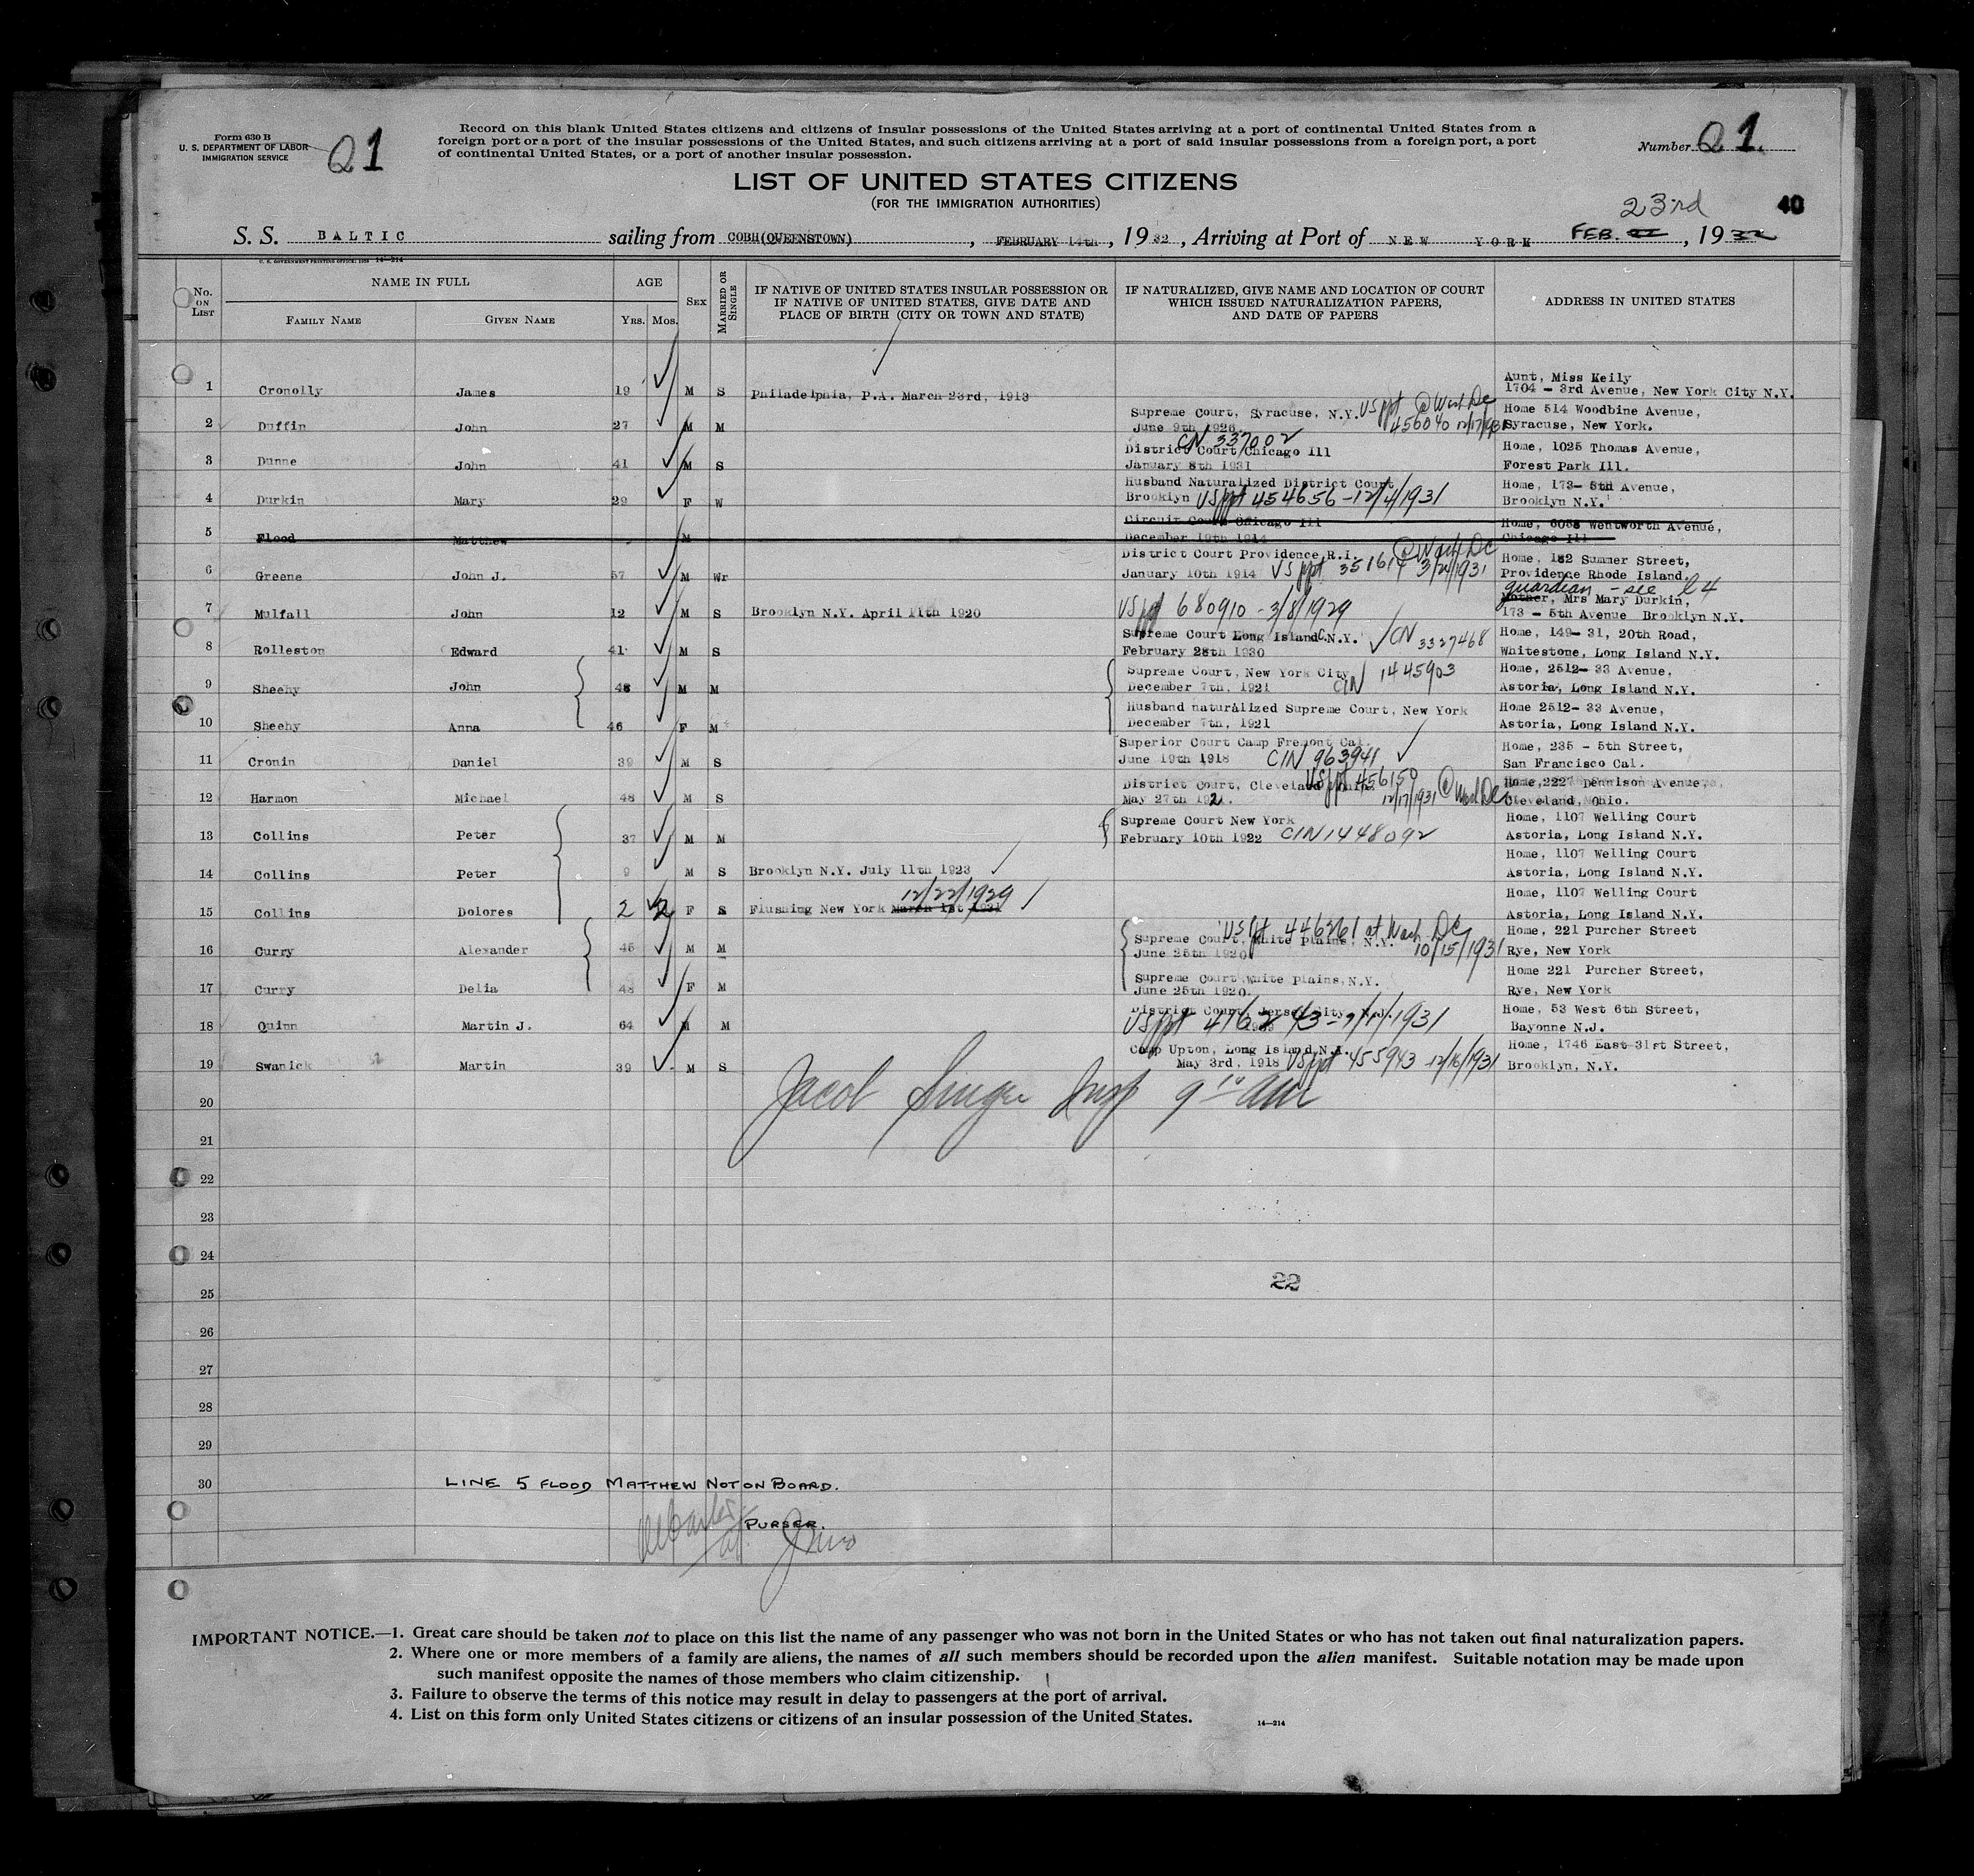 Form 630 B
U. S. DEPARTMENT OF LABOR
IMMIGRATION SERVICE
Q1
Record on this blank United States citizens and citizens of insular possessions of the United States arriving at a port of continental United States from a
foreign port or a port of the insular possessions of the United States, and such citizens arriving at a port of said insular possessions from a foreign port, a port
of continental United States, or a port of another insular possession.
Number Q1.
LIST OF UNITED STATES CITIZENS
(FOR THE IMMIGRATION AUTHORITIES)
23rd
40
S. S. BALTIC sailing from COBH(QUEENSTOWN), FEBRUARY 14th, 1932, Arriving at Port of NEW YORK FEB. , 1932
U. S. GOVERNMENT PRINTING OFFICE: 14—214
No. ON LIST
NAME IN FULL
FAMILY NAME
GIVEN NAME
AGE
YRS. MOS.
SEX
MARRIED OR SINGLE
IF NATIVE OF UNITED STATES INSULAR POSSESSION OR
IF NATIVE OF UNITED STATES, GIVE DATE AND
PLACE OF BIRTH (CITY OR TOWN AND STATE)
IF NATURALIZED, GIVE NAME AND LOCATION OF COURT
WHICH ISSUED NATURALIZATION PAPERS,
AND DATE OF PAPERS
ADDRESS IN UNITED STATES
1 Cronolly James 19 M S Philadelphia, P.A. March 23rd, 1913 Aunt, Miss Keily
1704 - 3rd Avenue, New York City N.Y.
2 Duffin John 27 M M Supreme Court, Syracuse, N.Y. US ppt @ Wash Dc Home 514 Woodbine Avenue,
June 9th 1926. 456040 12/17/931 Syracuse, New York.
CN 337002
3 Dunne John 41 M S District Court Chicago Ill Home, 1025 Thomas Avenue,
January 8th 1931 Forest Park Ill.
4 Durkin Mary 29 F W Husband Naturalized District Court Home, 173- 5th Avenue,
Brooklyn US ppt 454656 - 12/4/1931 Brooklyn N.Y.
5 Flood Matthew M Circuit Court Chicago Ill Home, 6058 Wentworth Avenue,
December 19th 1914 Chicago Ill
6 Greene John J. 57 M Wr District Court Providence R.I. @ Wash Dc Home, 182 Sumner Street,
January 10th 1914 US ppt 3/21/1931 Providence Rhode Island.
guardian - see l 4
7 Mulfall John 12 M S Brooklyn N.Y. April 11th 1920 US ppt 680910 - 3/8/1929 Mother, Mrs Mary Durkin,
173 - 5th Avenue Brooklyn N.Y.
8 Rolleston Edward 41 M S Supreme Court Long Island N.Y. CN 3327468 Home, 149- 31, 20th Road,
February 28th 1930 Whitestone, Long Island N.Y.
9 Sheehy John 48 M M Supreme Court, New York City CIN 1445903 Home, 2512- 33 Avenue,
December 7th, 1921 Astoria, Long Island N.Y.
10 Sheehy Anna 46 F M Husband naturalized Supreme Court, New York Home 2512- 33 Avenue,
December 7th, 1921 Astoria, Long Island N.Y.
11 Cronin Daniel 39 M S Superior Court Camp Fremont Cal. Home, 235 - 5th Street,
June 19th 1918 CIN 963941 San Francisco Cal.
12 Harmon Michael 48 M S District Court, Cleveland US ppt 456150 Home, 2227 Dennison Avenue,
May 27th 1921. 12/17/1931 @ Wash Dc Cleveland, Ohio.
13 Collins Peter 37 M M Supreme Court New York Home, 1107 Welling Court
February 10th 1922 CIN 1448092 Astoria, Long Island N.Y.
14 Collins Peter 9 M S Brooklyn N.Y. July 11th 1923 Home, 1107 Welling Court
Astoria, Long Island N.Y.
12/22/1929
15 Collins Dolores 2 2 F S Flushing New York March 1st 1931 Home, 1107 Welling Court
Astoria, Long Island N.Y.
US ppt 446261 at Wash. Dc
16 Curry Alexander 45 M M Supreme Court, White Plains, N.Y. 10/15/1931 Home, 221 Purcher Street
June 25th 1920 Rye, New York
17 Curry Delia 48 F M Supreme Court White Plains, N.Y. Home 221 Purcher Street,
June 25th 1920. Rye, New York
18 Quinn Martin J. 64 M M District Court, Jersey City N.J. Home, 53 West 6th Street,
US ppt 416243 - 7/1/1931 Bayonne N.J.
19 Swanick Martin 39 M S Camp Upton, Long Island N.Y. Home, 1746 East 31st Street,
May 3rd, 1918 US ppt 455943 12/16/1931 Brooklyn, N.Y.
Jacob Singer Insp 9 10 AM
20
21
22
23
24
22
25
26
27
28
29
30
LINE 5 FLOOD MATTHEW NOT ON BOARD.
PURSER.
IMPORTANT NOTICE.—1. Great care should be taken not to place on this list the name of any passenger who was not born in the United States or who has not taken out final naturalization papers.
2. Where one or more members of a family are aliens, the names of all such members should be recorded upon the alien manifest. Suitable notation may be made upon
such manifest opposite the names of those members who claim citizenship.
3. Failure to observe the terms of this notice may result in delay to passengers at the port of arrival.
4. List on this form only United States citizens or citizens of an insular possession of the United States.
14—214